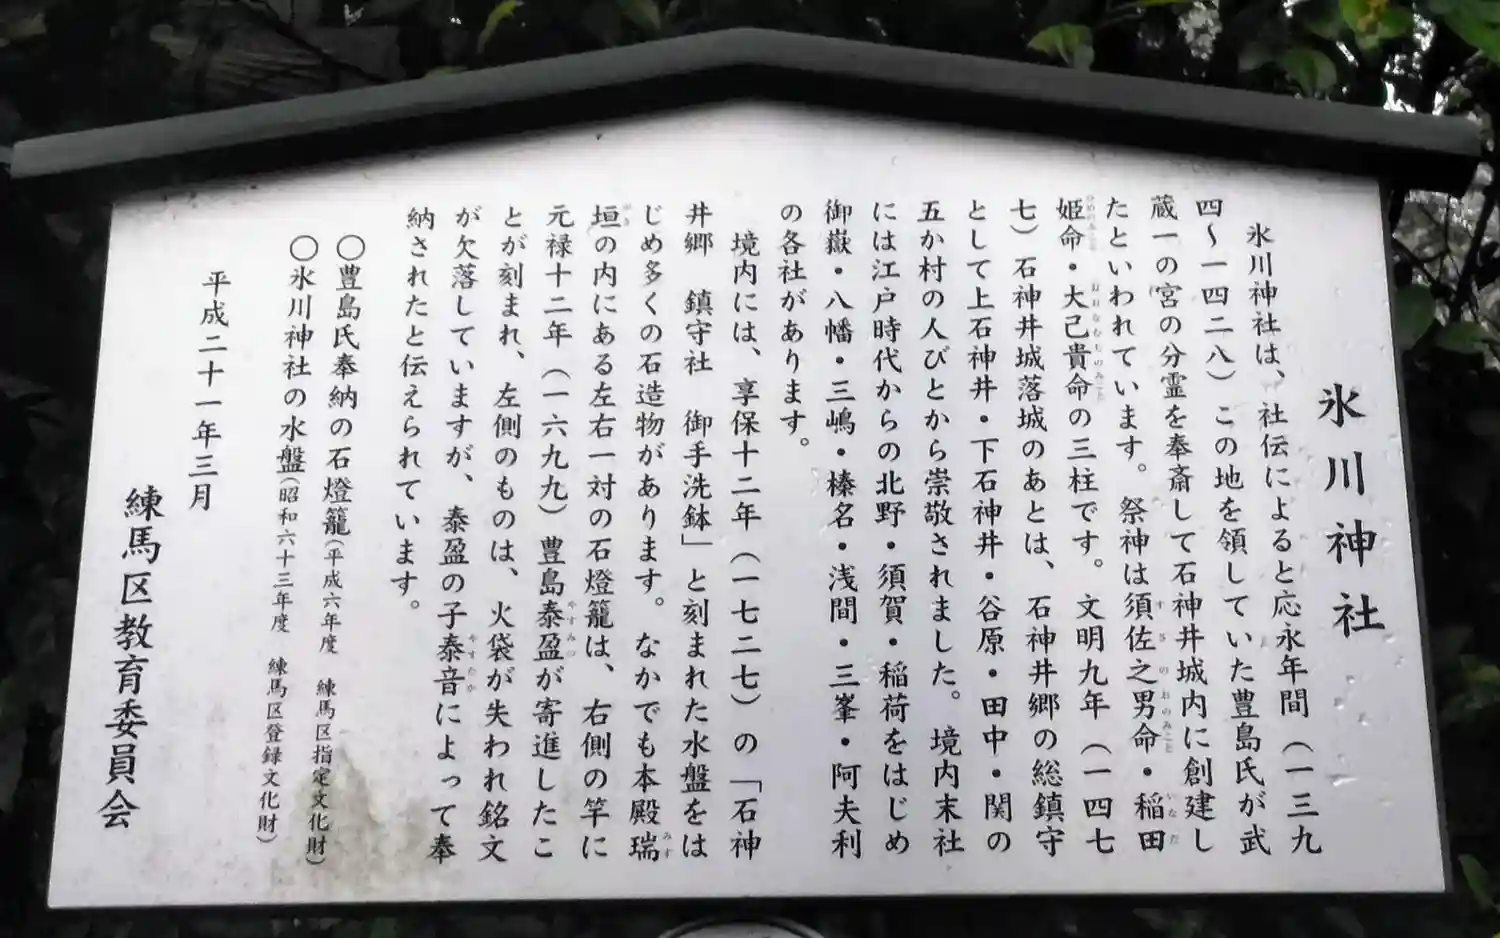 氷川神社
氷川神社は、社伝によると応永年間（一三九
四〜一四二八）この地を領していた豊島氏が武
蔵一の宮の分霊を奉斎して石神井城内に創建し
たといわれています。祭神は須佐之男命・稲田
姫命・大己貴命の三柱です。文明九年（一四七
七）石神井城落城のあとは、石神井郷の総鎮守
として上石神井・下石神井・谷原・田中・関の
五か村の人びとから崇敬されました。境内末社
には江戸時代からの北野・須賀・稲荷をはじめ
御嶽・八幡・三嶋・榛名・浅間・三峯・阿夫利
の各社があります。
境内には、享保十二年（一七二七）の「石神
井郷　鎮守社　御手洗鉢」と刻まれた水盤をは
じめ多くの石造物があります。なかでも本殿瑞
垣の内にある左右一対の石燈籠は、右側の竿に
元禄十二年（一六九九）豊島泰盈が寄進したこ
とが刻まれ、左側のものは、火袋が失われ銘文
が欠落していますが、泰盈の子泰音によって奉
納されたと伝えられています。
〇豊島氏奉納の石燈籠（平成六年度　練馬区指定文化財）
〇氷川神社の水盤（昭和六十三年度　練馬区登録文化財）
平成二十一年三月
練馬区教育委員会